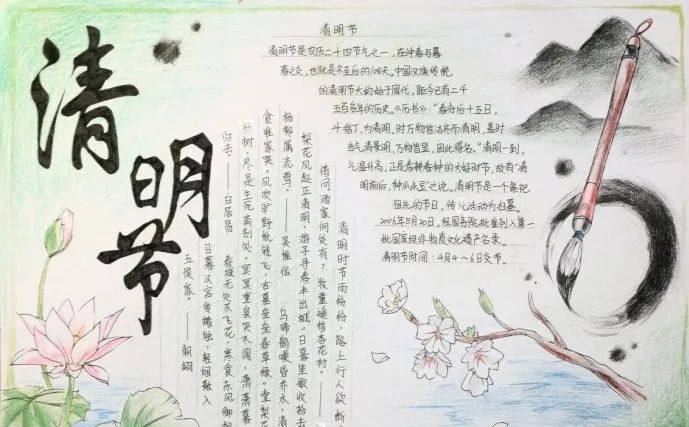 清明节
清明节
清明节是农历二十四节气之一，在仲春与暮
春之交，也就是冬至后的108天。中国汉族传统
的清明节大约始于周代，距今已有二千
五百多年的历史。《历书》："春分后十五日，
斗指丁，为清明，时万物皆洁齐而清明，盖时
当气清景明，万物皆显，因此得名。"清明一到，
气温升高，正是春耕春种的大好时节，故有"清
明前后，种瓜点豆"之说。清明节是一个祭祀
祖先的节日，传统活动为扫墓。
2006年5月20日，经国务院批准列入第一
批国家级非物质文化遗产名录。
清明节时间：4月4～6日交节。
清明时节雨纷纷，路上行人欲断
借问酒家何处有？牧童遥指杏花村。——
梨花风起正清明，游子寻春半出城。日暮笙歌收拾去
杨柳属流莺。——吴惟信 乌啼鹊噪昏乔木，清
食谁家哭。风吹旷野纸钱飞，古墓垒垒春草绿。棠梨花
杨树，尽是生死离别处。冥冥重泉哭不闻，萧萧暮
归去。——白居易 春城无处不飞花，寒食东风御柳
日暮汉宫传蜡烛，轻烟散入
五侯家。——韩翃